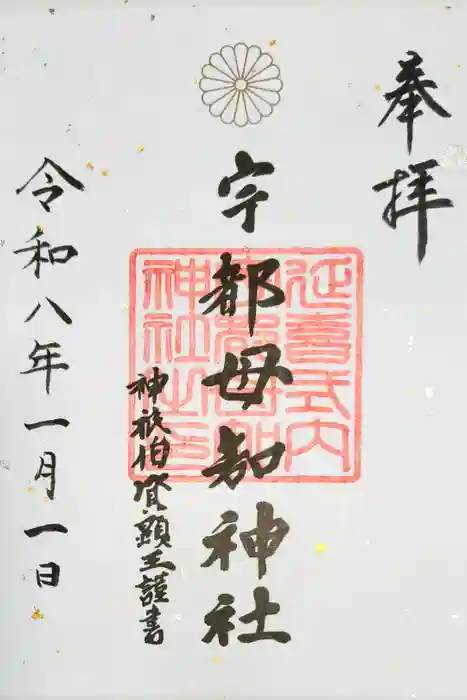 奉拝
宇都母知神社
延喜式内
宇都母知
神社之印
神祇伯資顕王謹書
令和八年一月一日